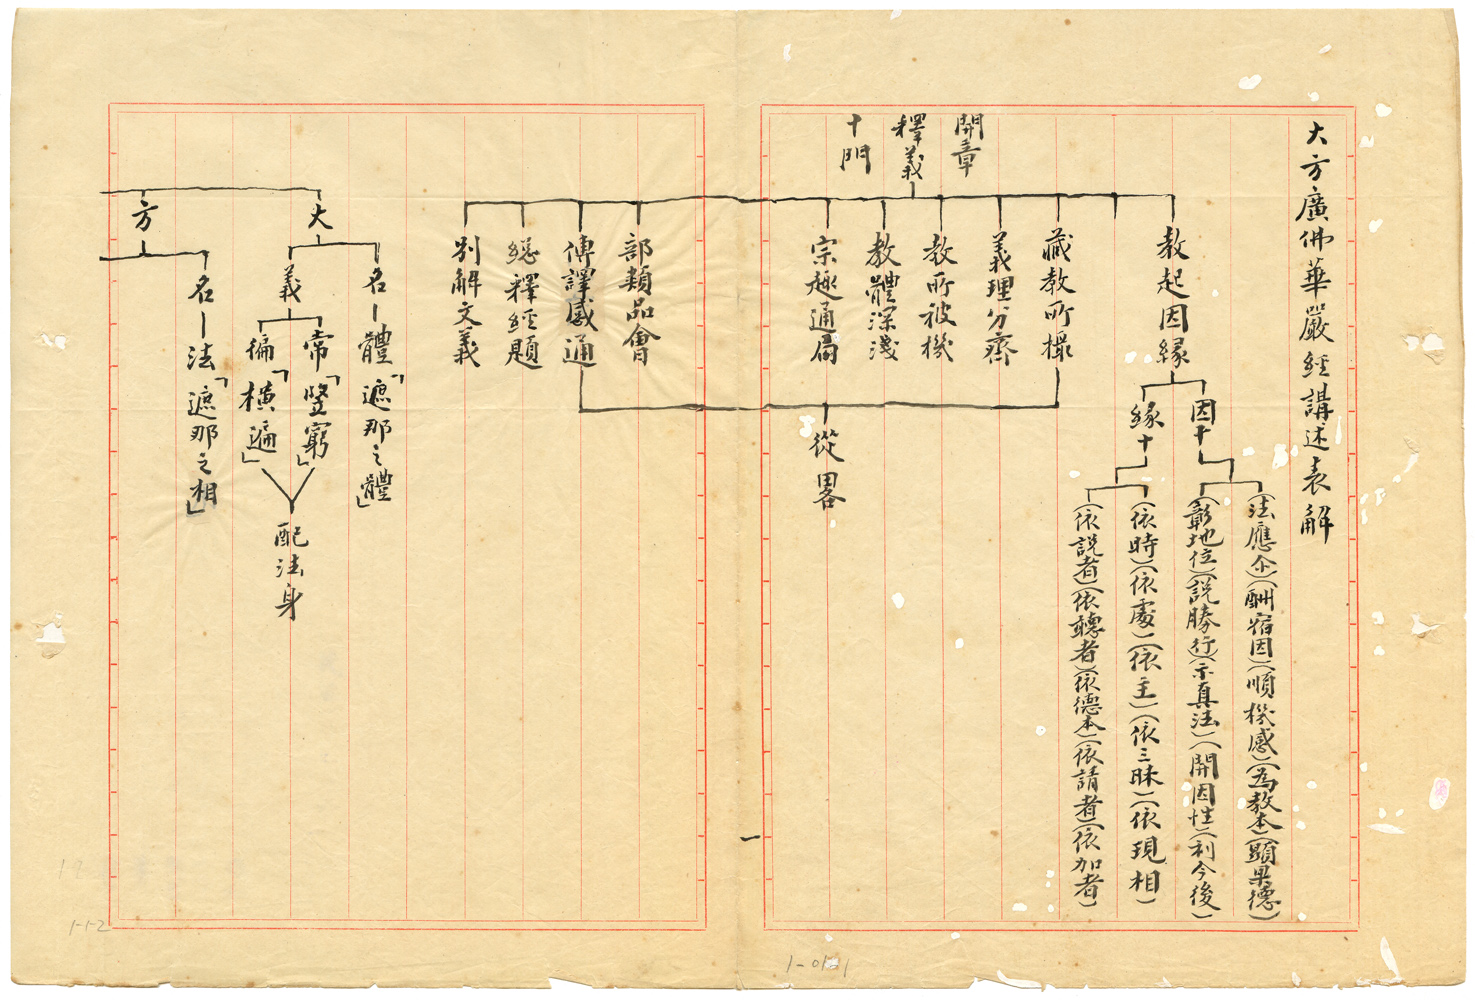 大方廣佛華嚴經講述表解
開章
釋義
十門
教起因緣
因十
(法應尒)(酬宿因)(順機感)(為教本)(顯果德)
(彰地位)(說勝行)(示真法)(開因性)(利今後)
緣十
(依時)(依處)(依主)(依三昧)(依現相)
(依說者)(依聽者)(依德本)(依請者)(依加者)
藏教所攝
義理分齊
教所被機
教體深淺
宗趣通局
部類品會
傳譯感通
總釋經題
別解文義
從畧
一
大
名—體「遮那之體」
義
常「豎窮」
徧「橫遍」
配法身
方
名—法「遮那之相」
1-01-1
1-1-2